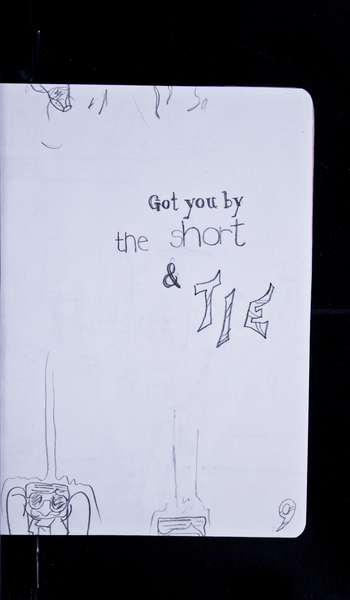 Got you by
the short
&
TIE
9